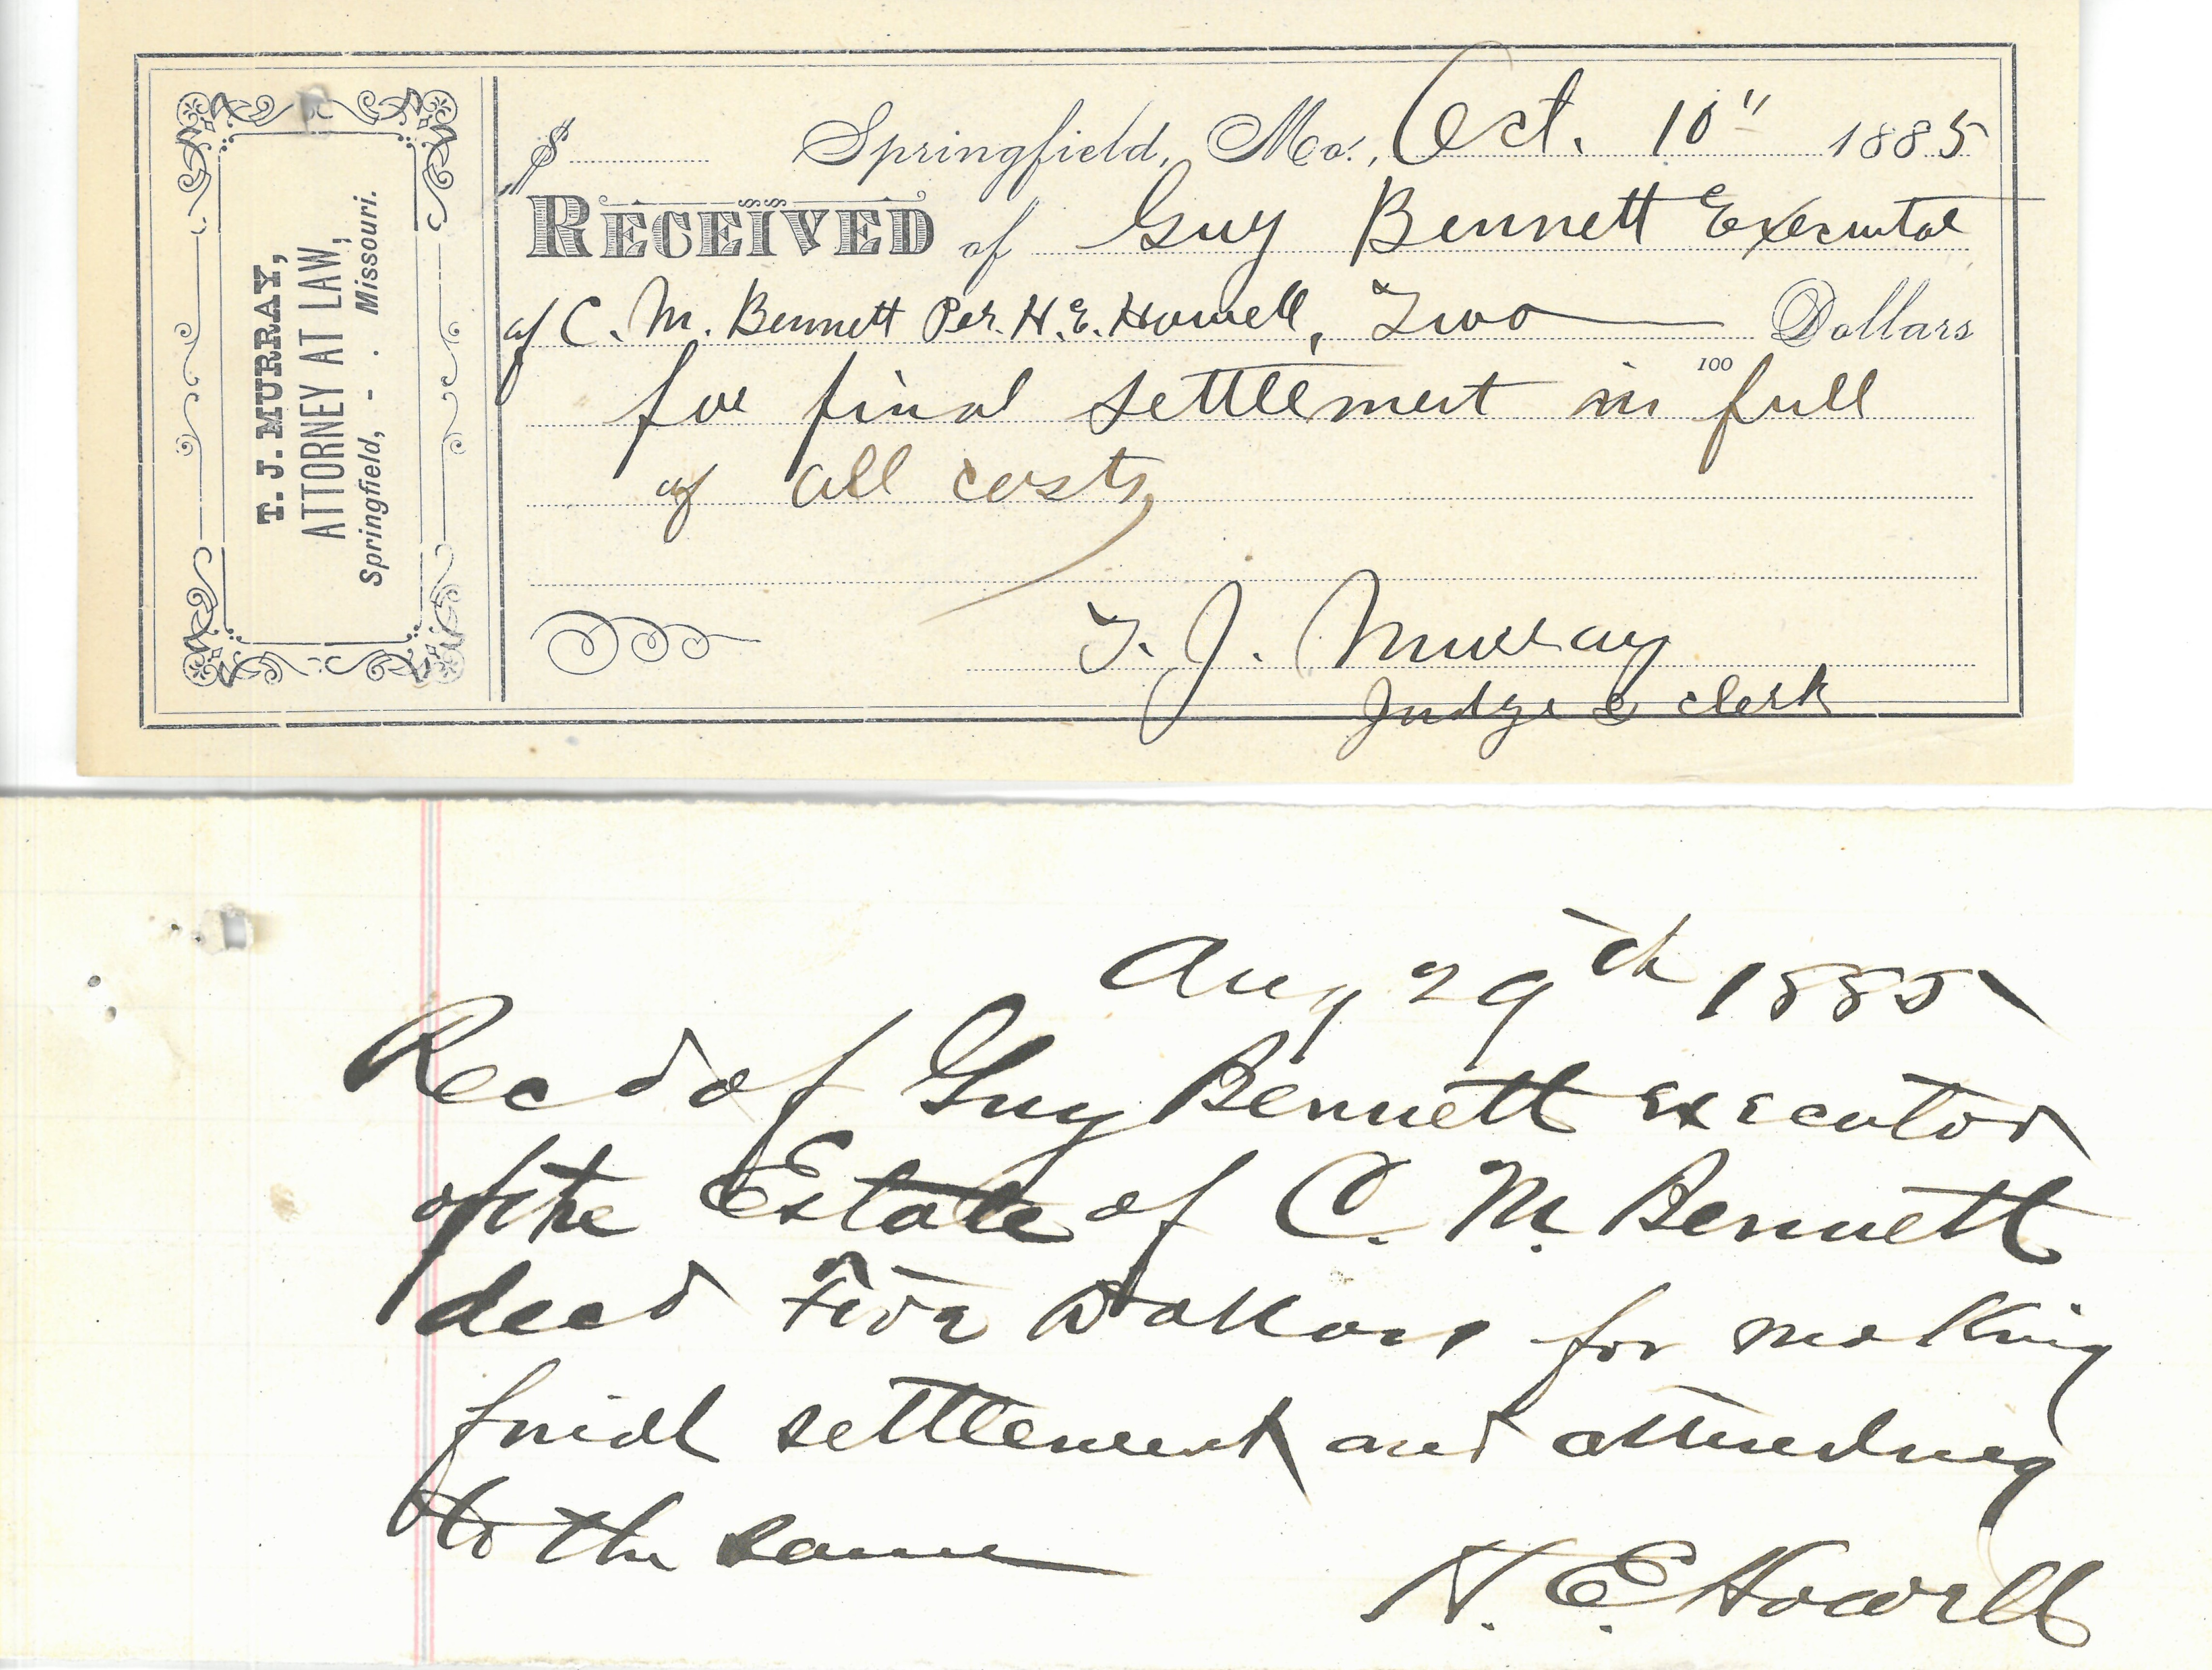 T. J. MURRAY,
ATTORNEY AT LAW,
Springfield, - . Missouri.
$ Springfield, Mo., Oct. 10" 1885
RECEIVED of Guy Bennett Executor
of C. M. Bennett Per. H. E. Howell, Two Dollars
100
for final settlement in full
of all costs
T. J. Murray
Judge & clerk
Aug 29th 1885
Recd of Guy Bennett executor
of the Estate of C. M. Bennett
decd Five Dollars for making
final settlement and attending
to the same
H. E Howell